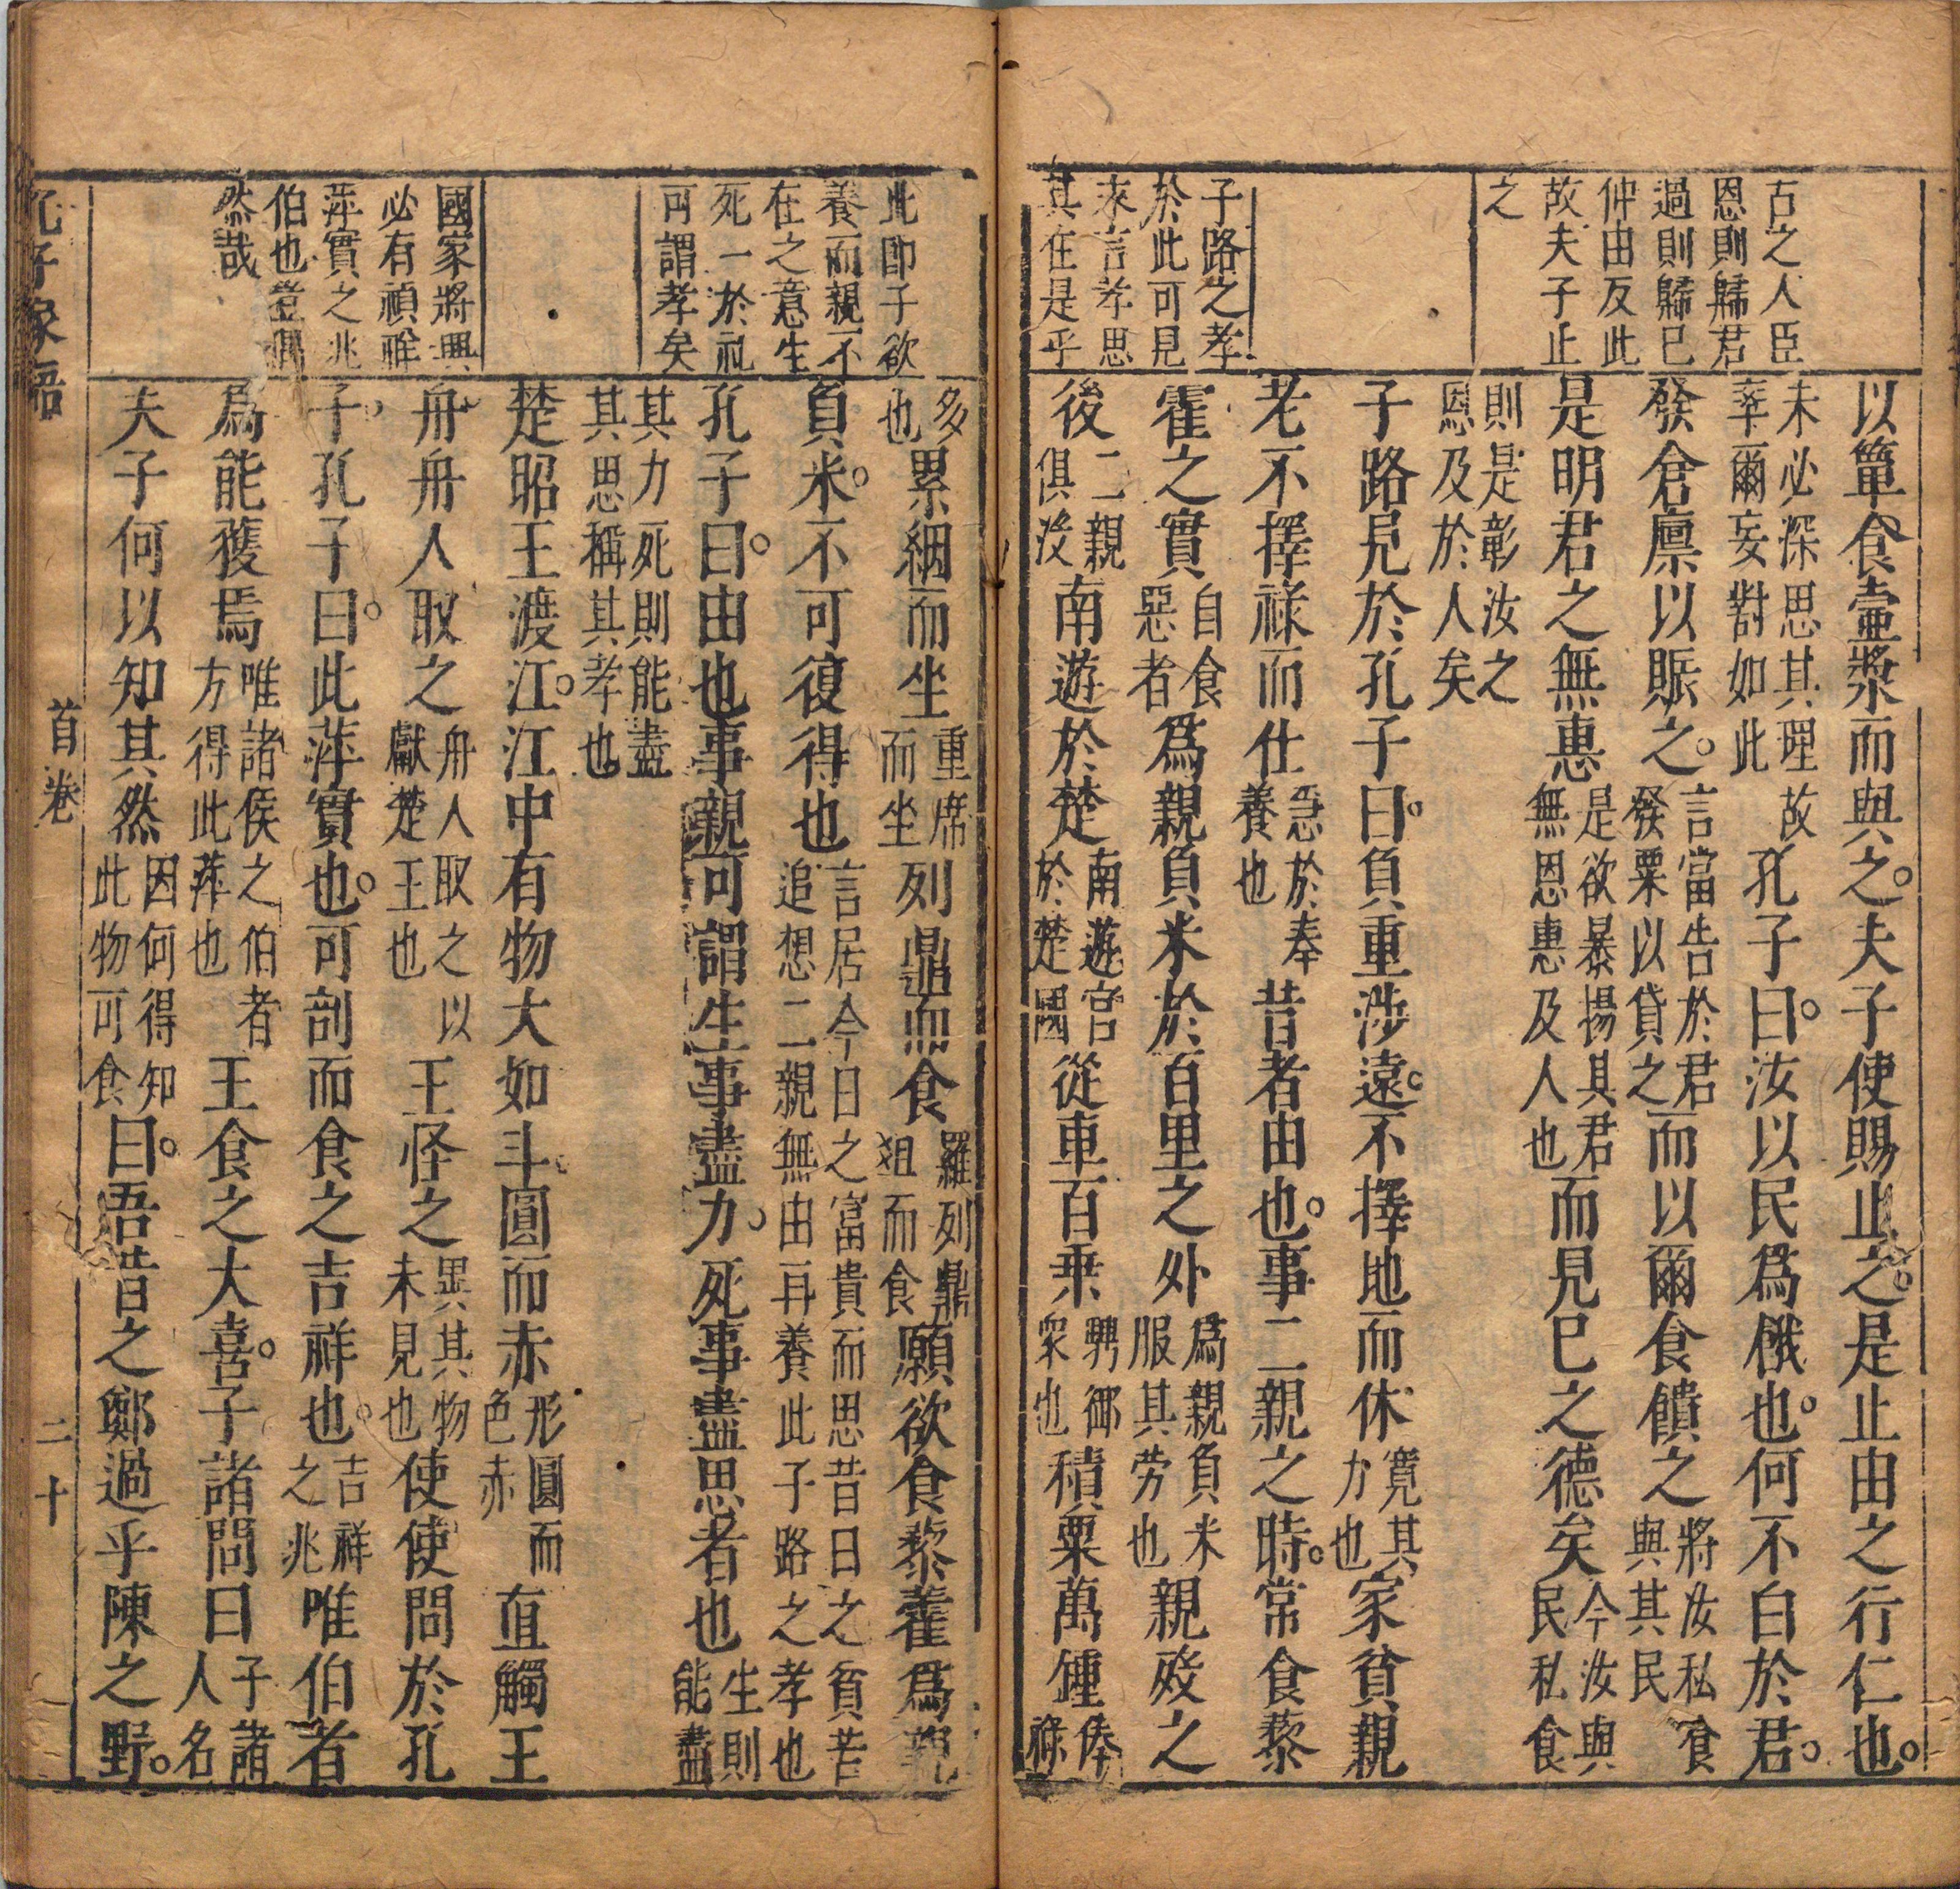 古之人臣
恩則歸君
過則歸己
仲由反此
故夫子止
之
子路之孝
於此可見
來言孝思
其在是乎
以簞食壷漿而與之夫子使賜止之是止由之行仁也
未必深思其理故
率爾妄對如此
孔子曰汝以民爲餓也何不白於君
發倉廪以賑之
言當告於君
發粟以貸之
而以爾食饋之
將汝私食
與其民
是明君之無惠
是欲暴揚其君
無恩惠及人也
而見巳之德矣
今汝與
民私食
則是彰汝之
恩及於人矣
子路見於孔子曰負重涉遠不擇地而休
寛其
力也
家貧親
老不擇祿而仕
急於奉
養也
昔者由也事二親之時常食藜
藿之實
自食
惡者
爲親負米於百里之外
爲親負米
服其劳也
親歿之
後
二親
俱没
南遊於楚
南遊宦
於楚國
從車百乗
騁御
衆也
積粟萬鍾
俸
祿
此卽子欲
養而親不
在之意生
死一於礼
可謂孝矣
國家將興
必有禎祥
萍實之兆
伯也豈偶
然哉
多
也
累絪而坐
重席
而坐
列鼎而食
羅列鼎
俎而食
願欲食藜藿爲親
負米不可復得也
言居今日之富貴而思昔日之貧苦
追想二親無由再養此子路之孝也
孔子曰由也事親可謂生事盡力死事盡思者也
生則
能盡
其力死則能盡
其思稱其孝也
楚昭王渡江江中有物大如斗圓而赤
形圓而
色赤
直觸王
舟舟人取之
舟人取之以
獻楚王也
王怪之
異其物
未見也
使使問於孔
子孔子曰此萍實也可剖而食之吉祥也
吉祥
之兆
唯伯者
爲能獲焉
唯諸侯之伯者
方得此萍也
王食之大喜子諸問曰
子諸
人名
夫子何以知其然
因何得知
此物可食
曰吾昔之鄭過乎陳之野
孔子家語
首卷
二十